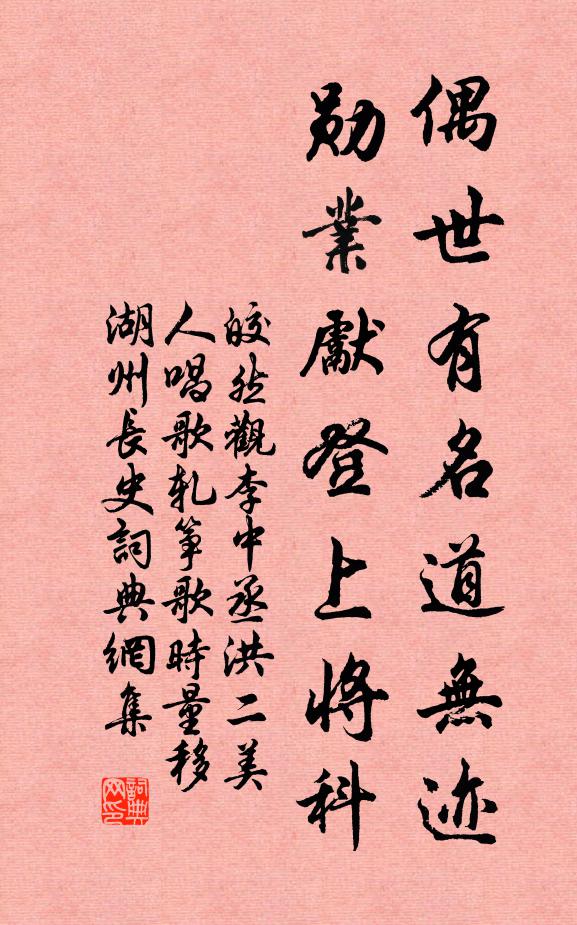 偶世有名道無迹
勛業獻登上將科
皎然觀李中丞洪二美
人唱歌軋箏歌時量移
湖州長史詞典網集
詞典網印